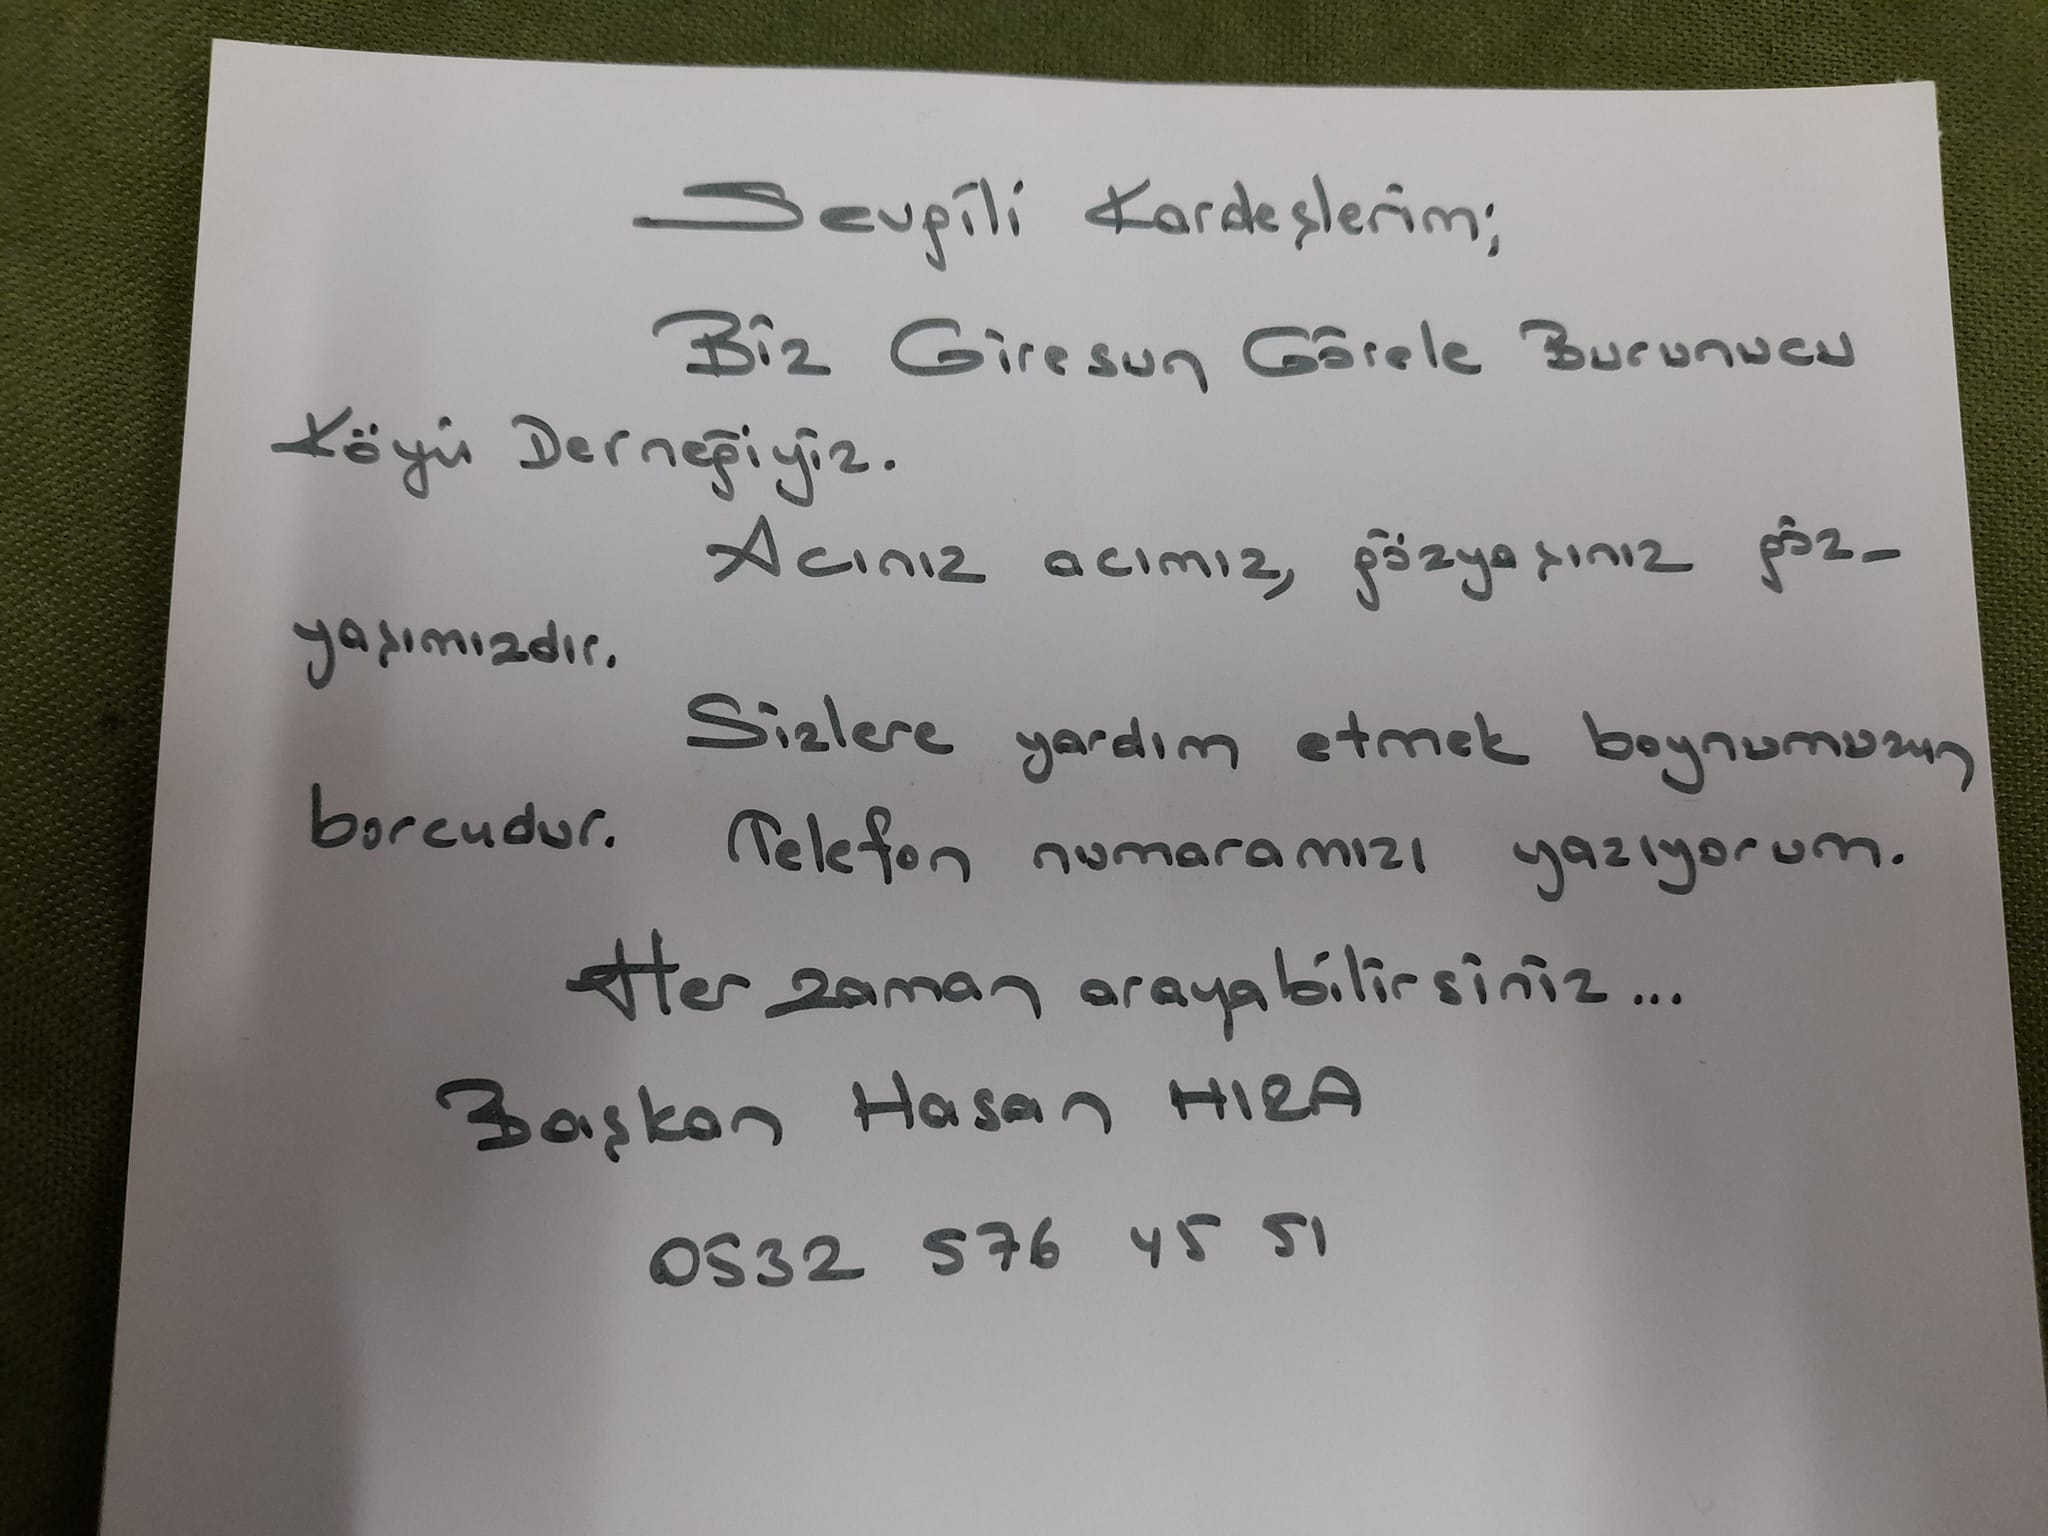 Sevgili Kardeşlerim;
Biz Giresun Görele Burunucu
Köyü Derneğiyiz.
Acınız acımız, gözyaşınız göz-
yaşımızdır.
Sizlere yardım etmek boynumuzun
borcudur. Telefon numaramızı yazıyorum.
Her zaman arayabilirsiniz...
Başkan Hasan HIZA
0532 576 45 51